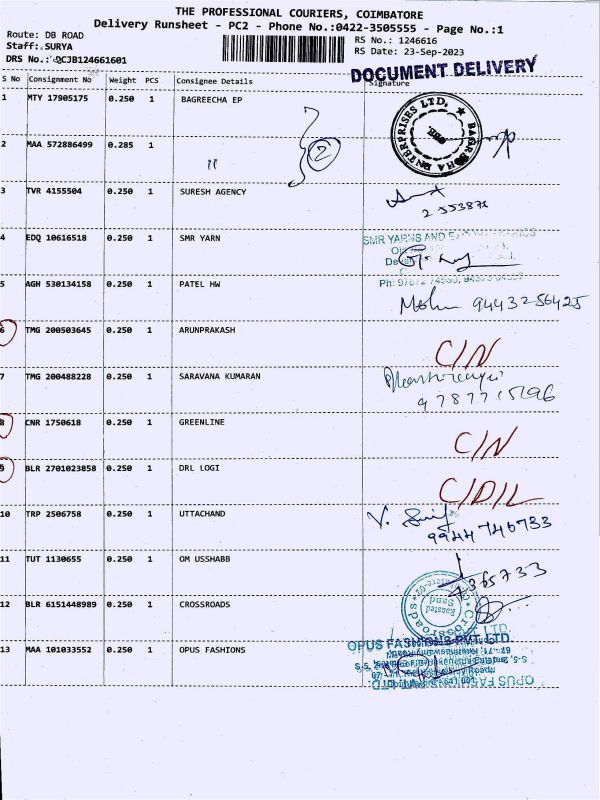 THE PROFESSIONAL COURIERS, COIMBATORE
Delivery Runsheet - PC2 - Phone No.:0422-3505555 - Page No.:1
Route: DB ROAD
RS No.: 1246616
Staff: SURYA
RS Date: 23-Sep-2023
DRS No.: QCJB124661601
DOCUMENT DELIVERY
S No Consignment No Weight PCS Consignee Details Signature
1 MTY 17905175 0.250 1 BAGREECHA EP
ENTERPRISES LTD.
2 MAA 572886499 0.285 1
" 2
3 TVR 4155504 0.250 1 SURESH AGENCY
4 EDQ 10616518 0.250 1 SMR YARN
SMR YARNS AND
5 AGH 530134158 0.250 1 PATEL HW
9443256425
6 TMG 200503645 0.250 1 ARUNPRAKASH
C/N
7 TMG 200488228 0.250 1 SARAVANA KUMARAN
9787715196
8 CNR 1750618 0.250 1 GREENLINE
C/N
9 BLR 2701023858 0.250 1 DRL LOGI
C/D/L
10 TRP 2506758 0.250 1 UTTACHAND
9944746733
11 TUT 1130655 0.250 1 OM USSHABB
4365733
12 BLR 6151448989 0.250 1 CROSSROADS
Crossroads
13 MAA 101033552 0.250 1 OPUS FASHIONS
OPUS FASHIONS PVT. LTD.